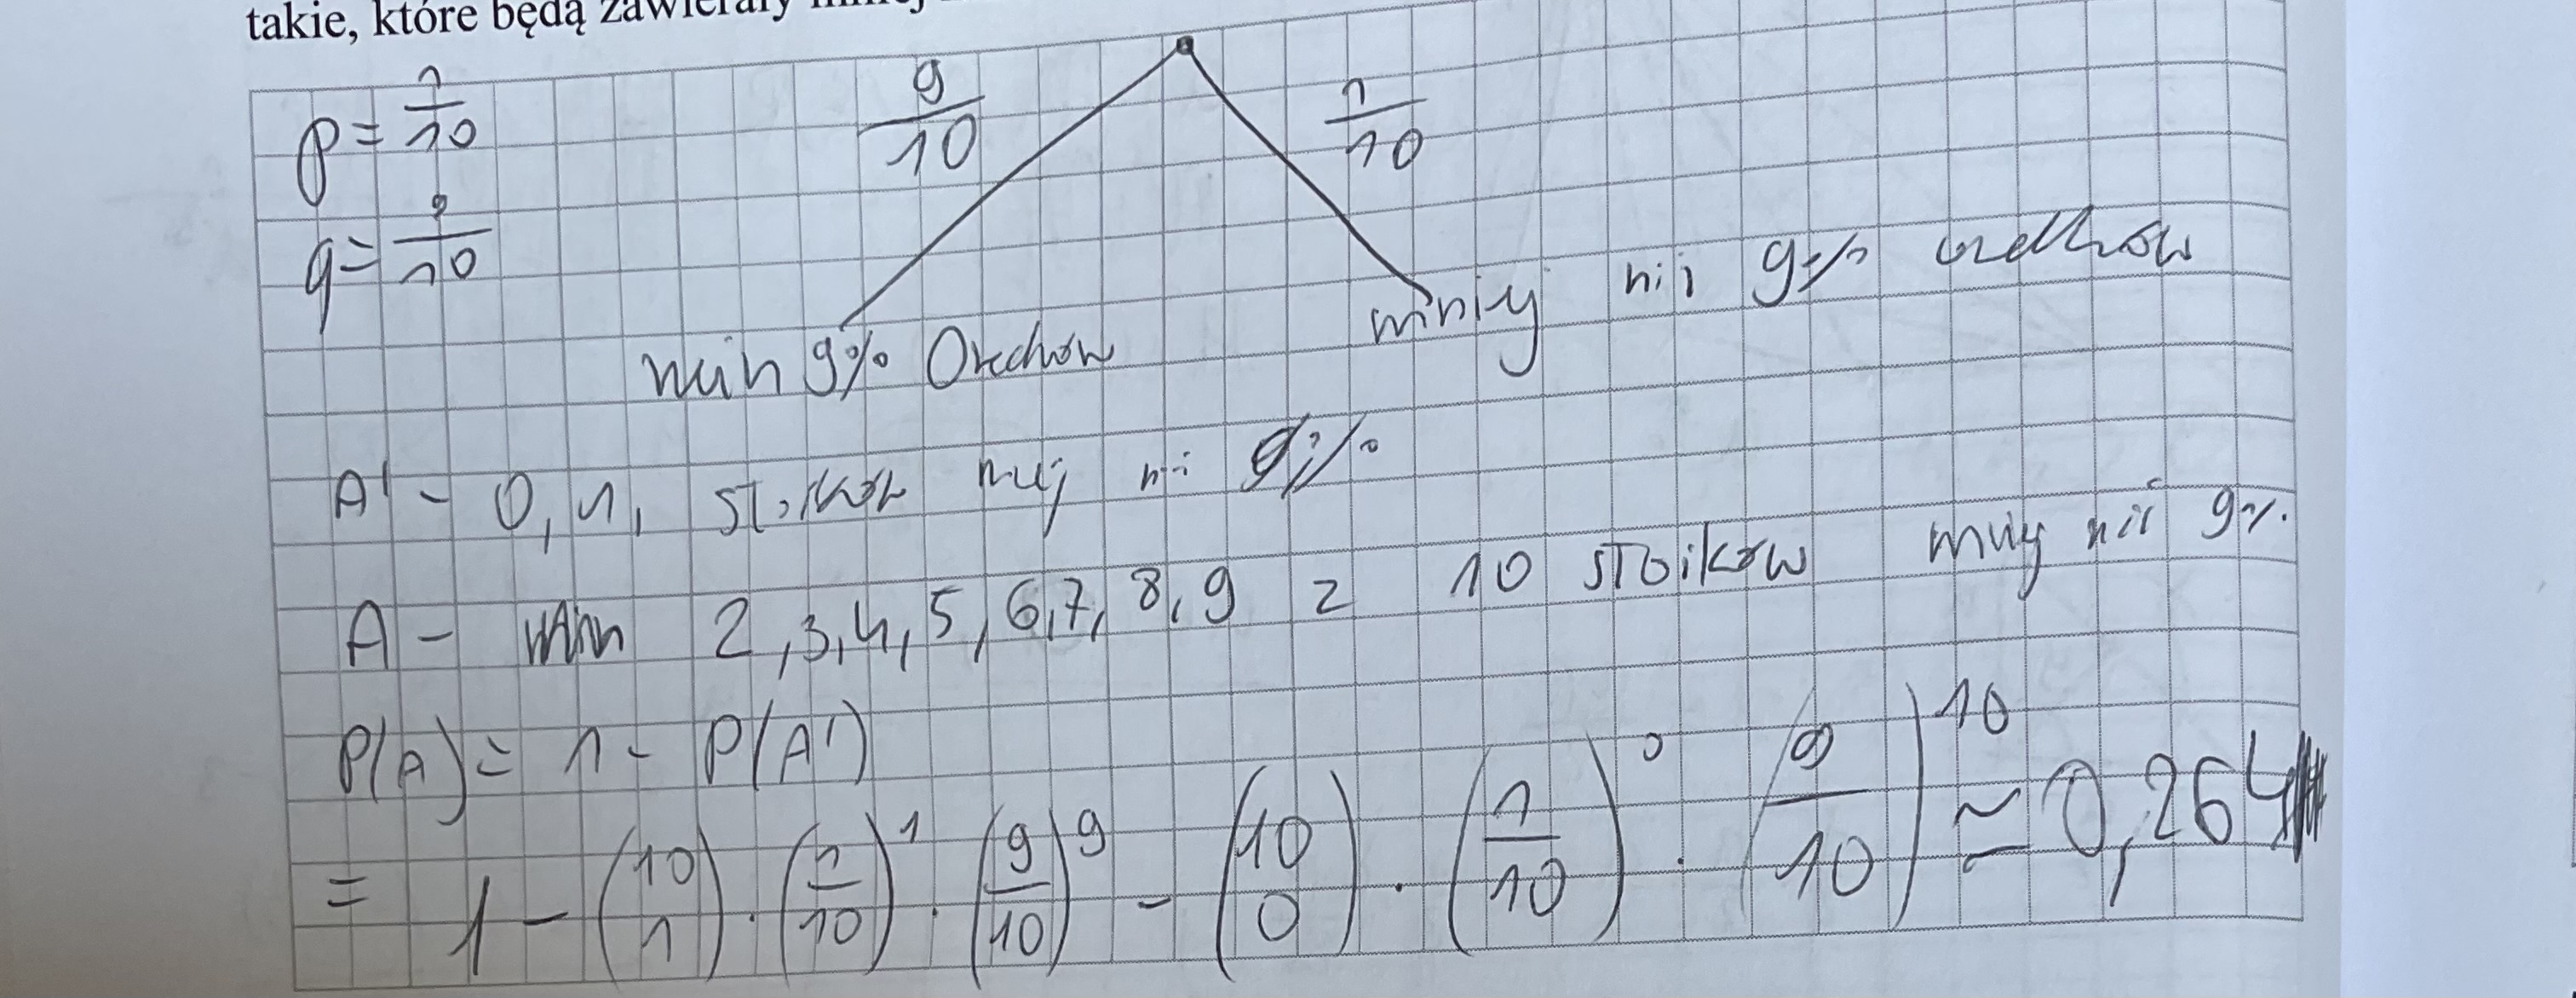 takie, które będą zawierały mniej
p = 1/10
9/10 1/10
q = 9/10
min 9% Orzechów mniej niż 9% orzechów
A' - 0, 1, słoików mniej niż 9%
A - min 2, 3, 4, 5, 6, 7, 8, 9 z 10 słoików mniej niż 9%.
P(A) = 1 - P(A')
= 1 - (10 1) · (1/10)^1 · (9/10)^9 - (10 0) · (1/10)^0 · (9/10)^10 ≈ 0,264